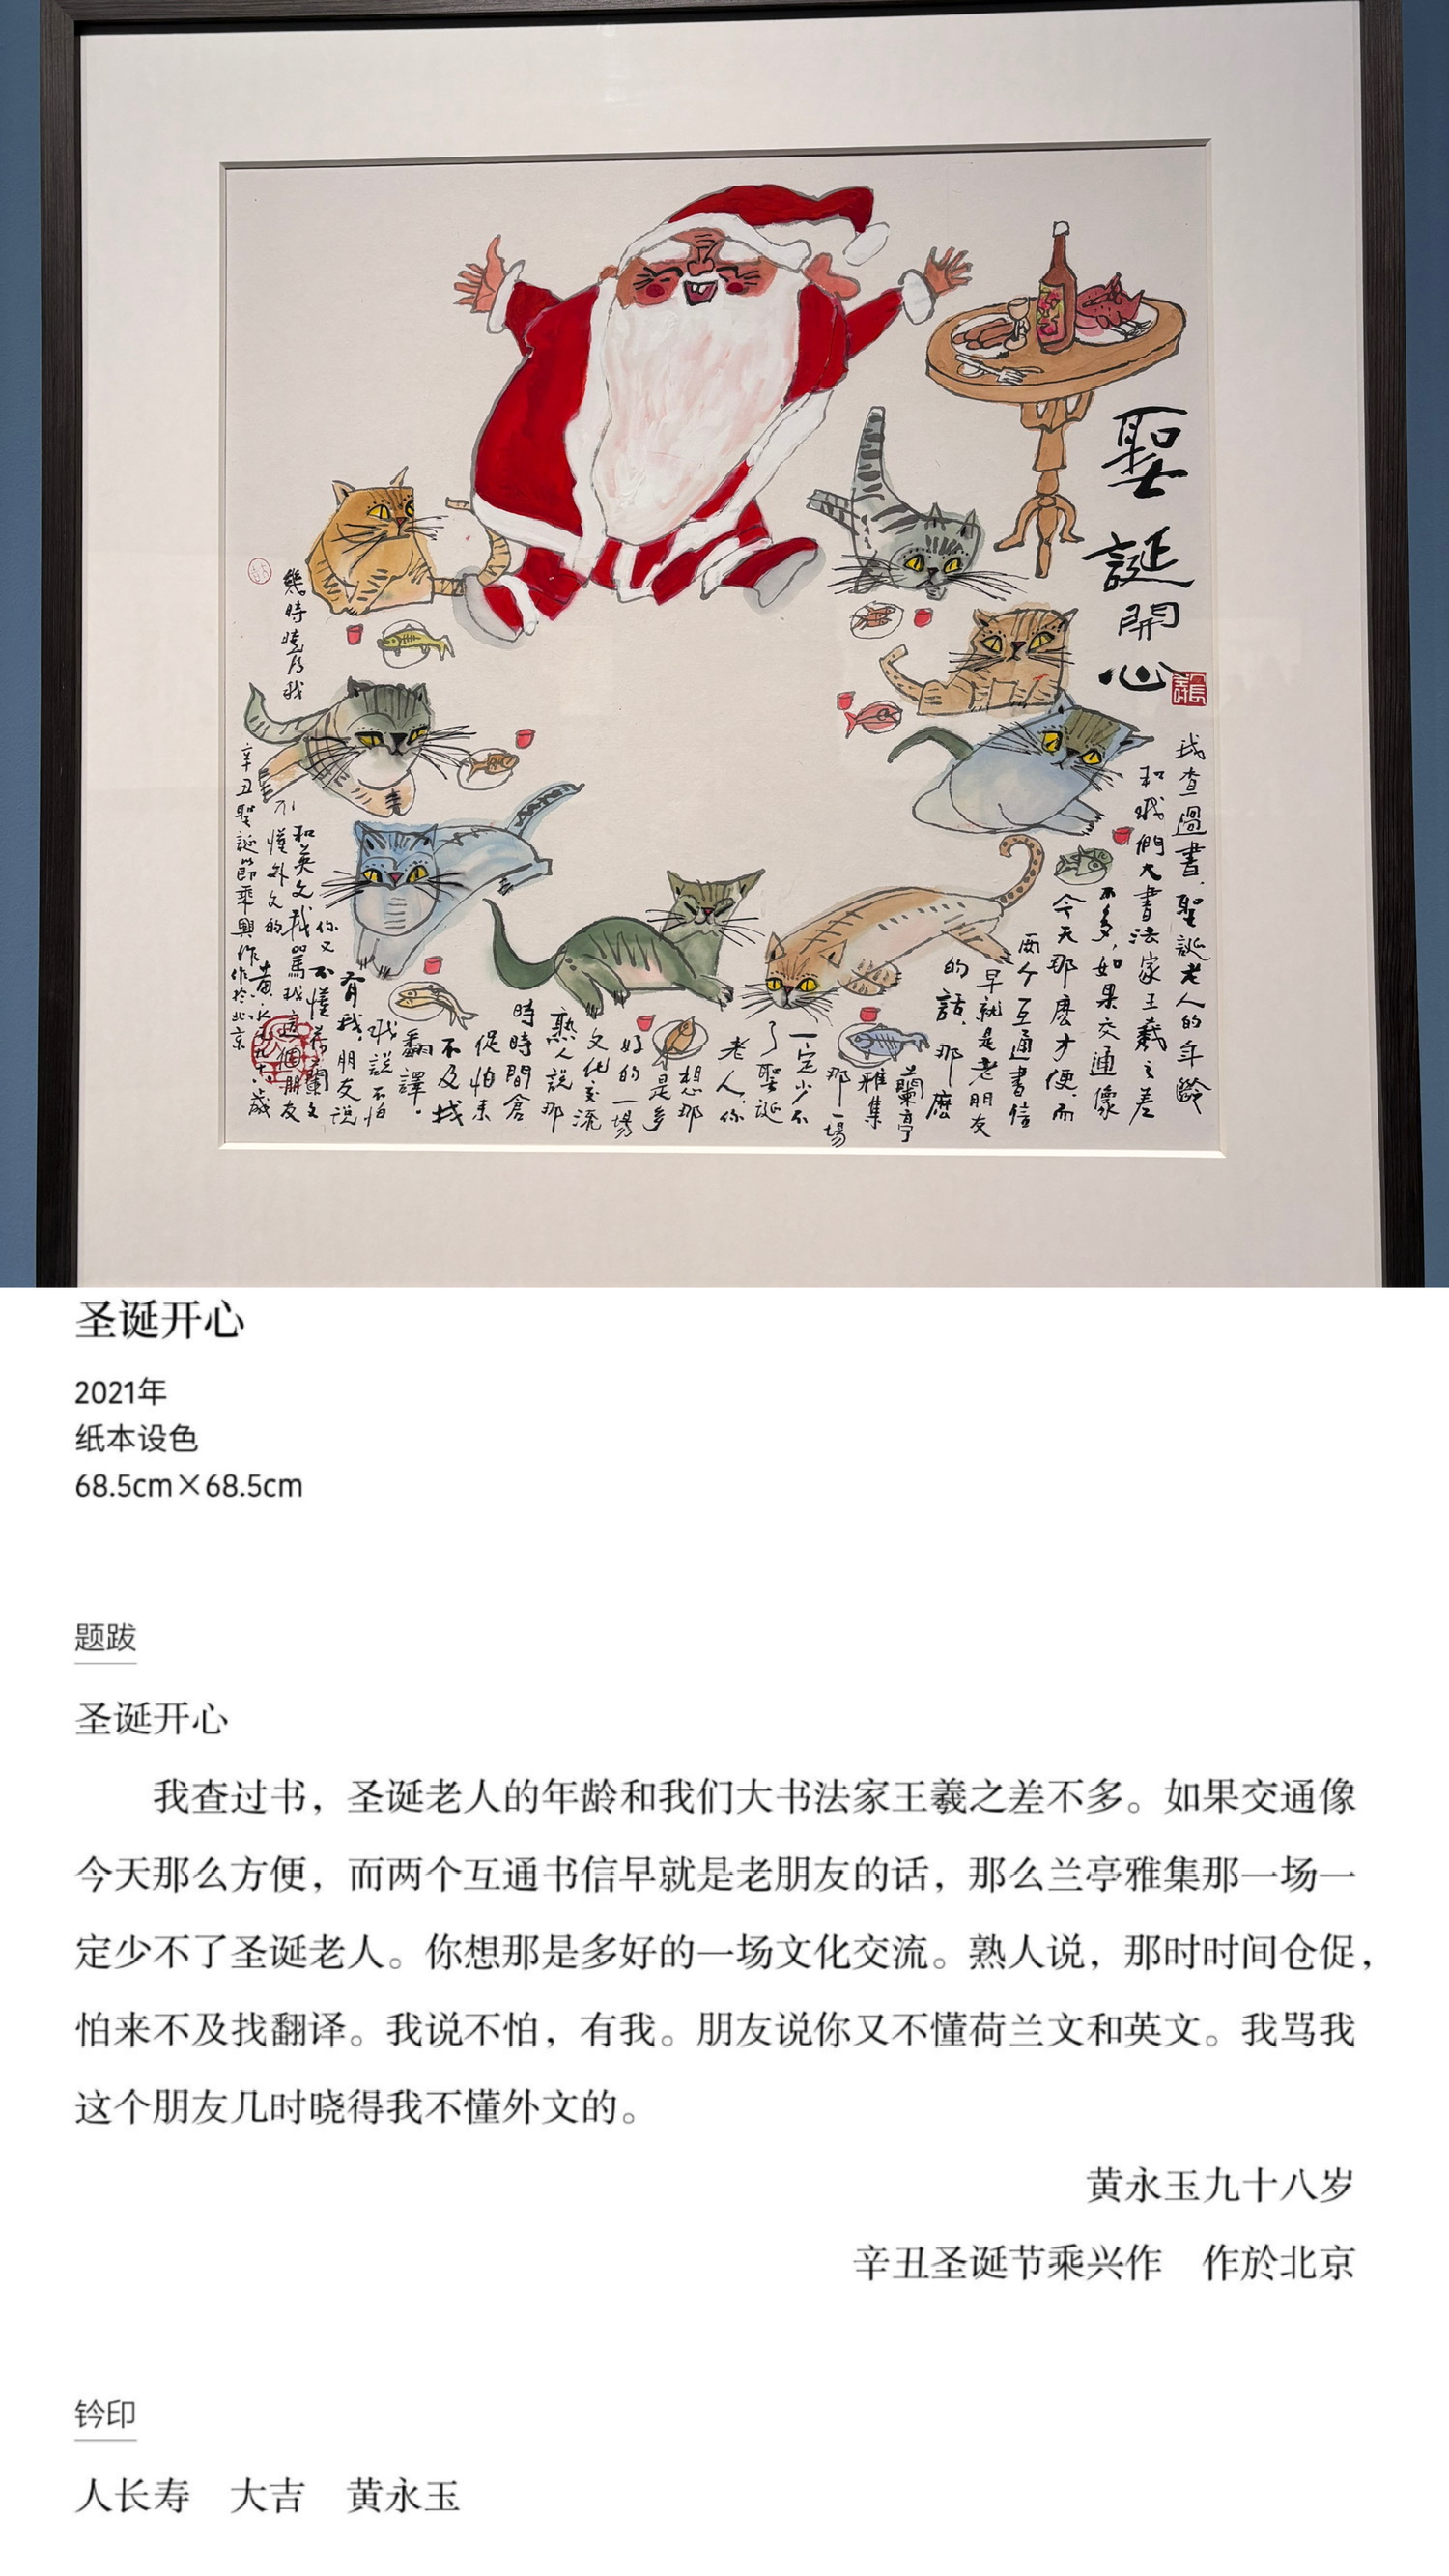 聖誕開心
人長壽
我查過書,聖誕老人的年齡
和我們大書法家王羲之差
不多,如果交通像
今天那麽方便,而
兩个互通書信
早就是老朋友
的話,那麽
蘭亭
雅集
那一場
一定少不
了聖誕
老人,你
想那
是多
好的一場
文化交流
熟人說那
時時間倉
促怕来
不及找
翻譯。
我說不怕
有我,朋友說
你又不懂荷蘭文
和英文我罵我這個朋友
幾時曉得我
不懂外文的
黃永玉九十八歲
辛丑聖誕節乘興作作於北京
大吉
圣诞开心
2021年
纸本设色
68.5cm×68.5cm
题跋
圣诞开心
我查过书，圣诞老人的年龄和我们大书法家王羲之差不多。如果交通像
今天那么方便，而两个互通书信早就是老朋友的话，那么兰亭雅集那一场一
定少不了圣诞老人。你想那是多好的一场文化交流。熟人说，那时时间仓促，
怕来不及找翻译。我说不怕，有我。朋友说你又不懂荷兰文和英文。我骂我
这个朋友几时晓得我不懂外文的。
黄永玉九十八岁
辛丑圣诞节乘兴作　作於北京
钤印
人长寿　大吉　黄永玉